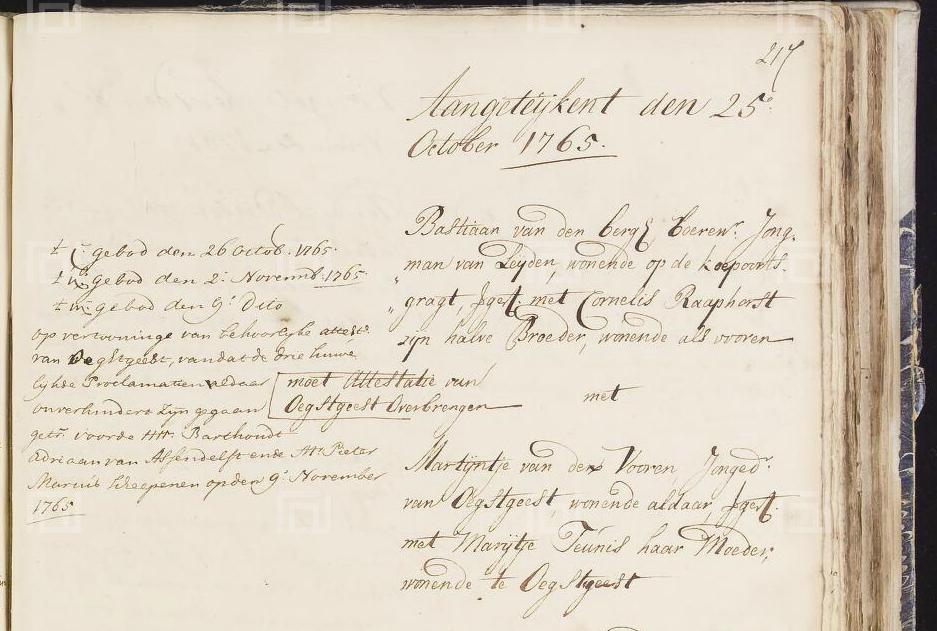 217
Aangeteijkent den 25.
October 1765.
Bastiaan van den berg boerenr. Jong.
man van Leyden, wonende op de koepoorts.
gragt, Jgert. met Cornelis Raaphorst
zijn halve Broeder, wonende als vooren
met
Martijntje van der Vooren Jonged.
van Oegstgeest, wonende aldaar Jgert.
met Marijtje Teunis haar Moeder,
wonende te Oegstgeest
gebod den 26 Octob. 1765.
gebod den 2. Novemb. 1765
gebod den 9. Dito
op vertooninge van behoorlyke attest.
van Oegstgeest, van dat de drie huwe
lykse Proclamatien aldaar
onverhindert zijn gegaan
getr. voorde Hr. Barthoudt
Adriaan van Assendelft ende Hr. Pieter
Marcus Scheepenen op den 9. November
1765
moet Attestatie van
Oegstgeest Overbrengen